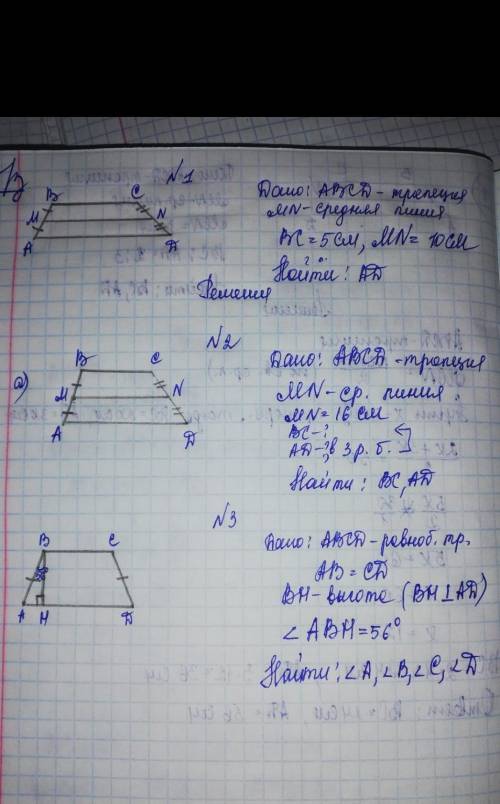 №1
B C
M N
A D
Дано: ABCD - трапеция
MN - средняя линия
BC = 5 см, MN = 10 см
Найти: AD
Решения
№2
а)
B C
M N
A D
Дано: ABCD - трапеция
MN - ср. линия
MN = 16 см
BC - ?
AD - ? в 3 р. б.
Найти: BC, AD
№3
B C
A H D
Дано: ABCD - равноб. тр.
AB = CD
BH - высота (BH ⊥ AD)
∠ABH = 56°
Найти: ∠A, ∠B, ∠C, ∠D